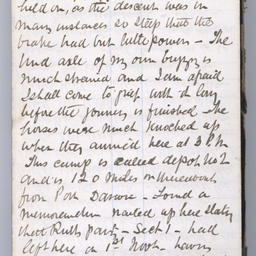 held on, as the descent was in
many instances so steep that the
brake had but little power - The
hind axle of my own buggy is
much strained and I am afraid
I shall come to grief with it long
before the journey is finished The
horses were much knocked up
when they arrived here at 3 P.M
This camp is called depot No 2
and is 120 miles on
from Port Darwin - Found a
memorandum nailed up here stating
that Ruth party - Sect 1 - had
left here on 1st Novr. having